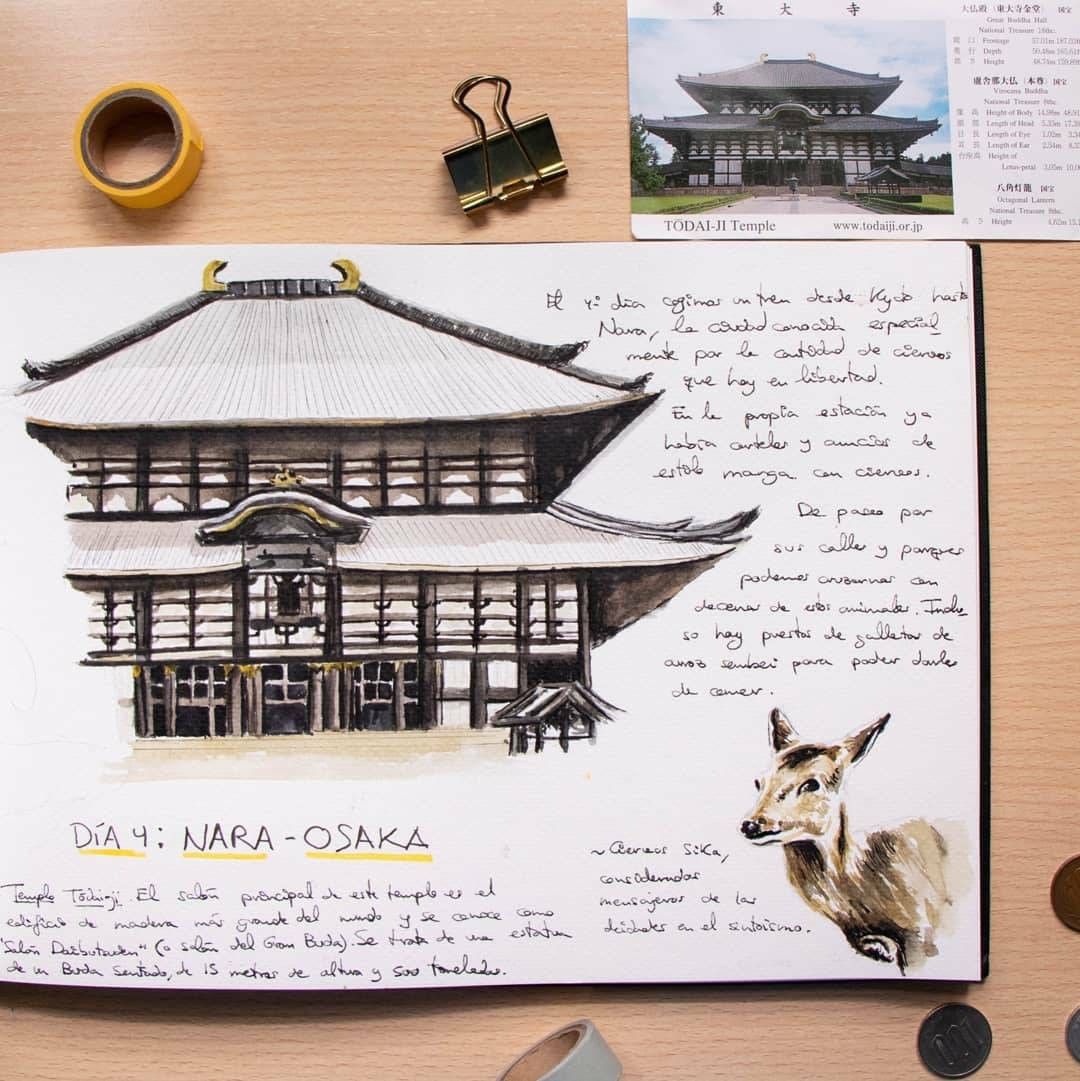 東 大 寺
TŌDAI-JI Temple
www.todaiji.or.jp
大仏殿〈東大寺金堂〉国宝
Great Buddha Hall
National Treasure 18thc.
間 口 Frontage 57.01m 187.02f
奥 行 Depth 50.48m 165.61f
高 さ Height 48.74m 159.89f
盧舎那大仏〈本尊〉国宝
Virocana Buddha
National Treasure 8thc.
座 高 Height of Body 14.98m 48.91
顔 長 Length of Head 5.33m 17.
目 長 Length of Eye 1.02m 3.34
耳 長 Length of Ear 2.54m 8.33
台座高 Height of
Lotus-petal 3.05m 10.0
八角灯籠 国宝
Octagonal Lantern
National Treasure 8thc.
高 さ Height 4.62m 15.1
El 4º día cogimos un tren desde Kyoto hasta
Nara, la ciudad conocida especial
mente por la cantidad de ciervos
que hay en libertad.
En la propia estación ya
había carteles y anuncios de
estilo manga con ciervos.
De paseo por
sus calles y parques
podemos cruzarnos con
decenas de estos animales. Inclu
so hay puestos de galletas de
arroz sembei para poder darles
de comer.
~ Ciervos Sika,
considerados
mensajeros de las
deidades en el sintoísmo.
DÍA 4: NARA - OSAKA
Templo Tōdai-ji. El salón principal de este templo es el
edificio de madera más grande del mundo y se conoce como
"Salón Daibutsuden" (o salón del Gran Buda). Se trata de una estatua
de un Buda sentado, de 15 metros de altura y 500 toneladas.
100